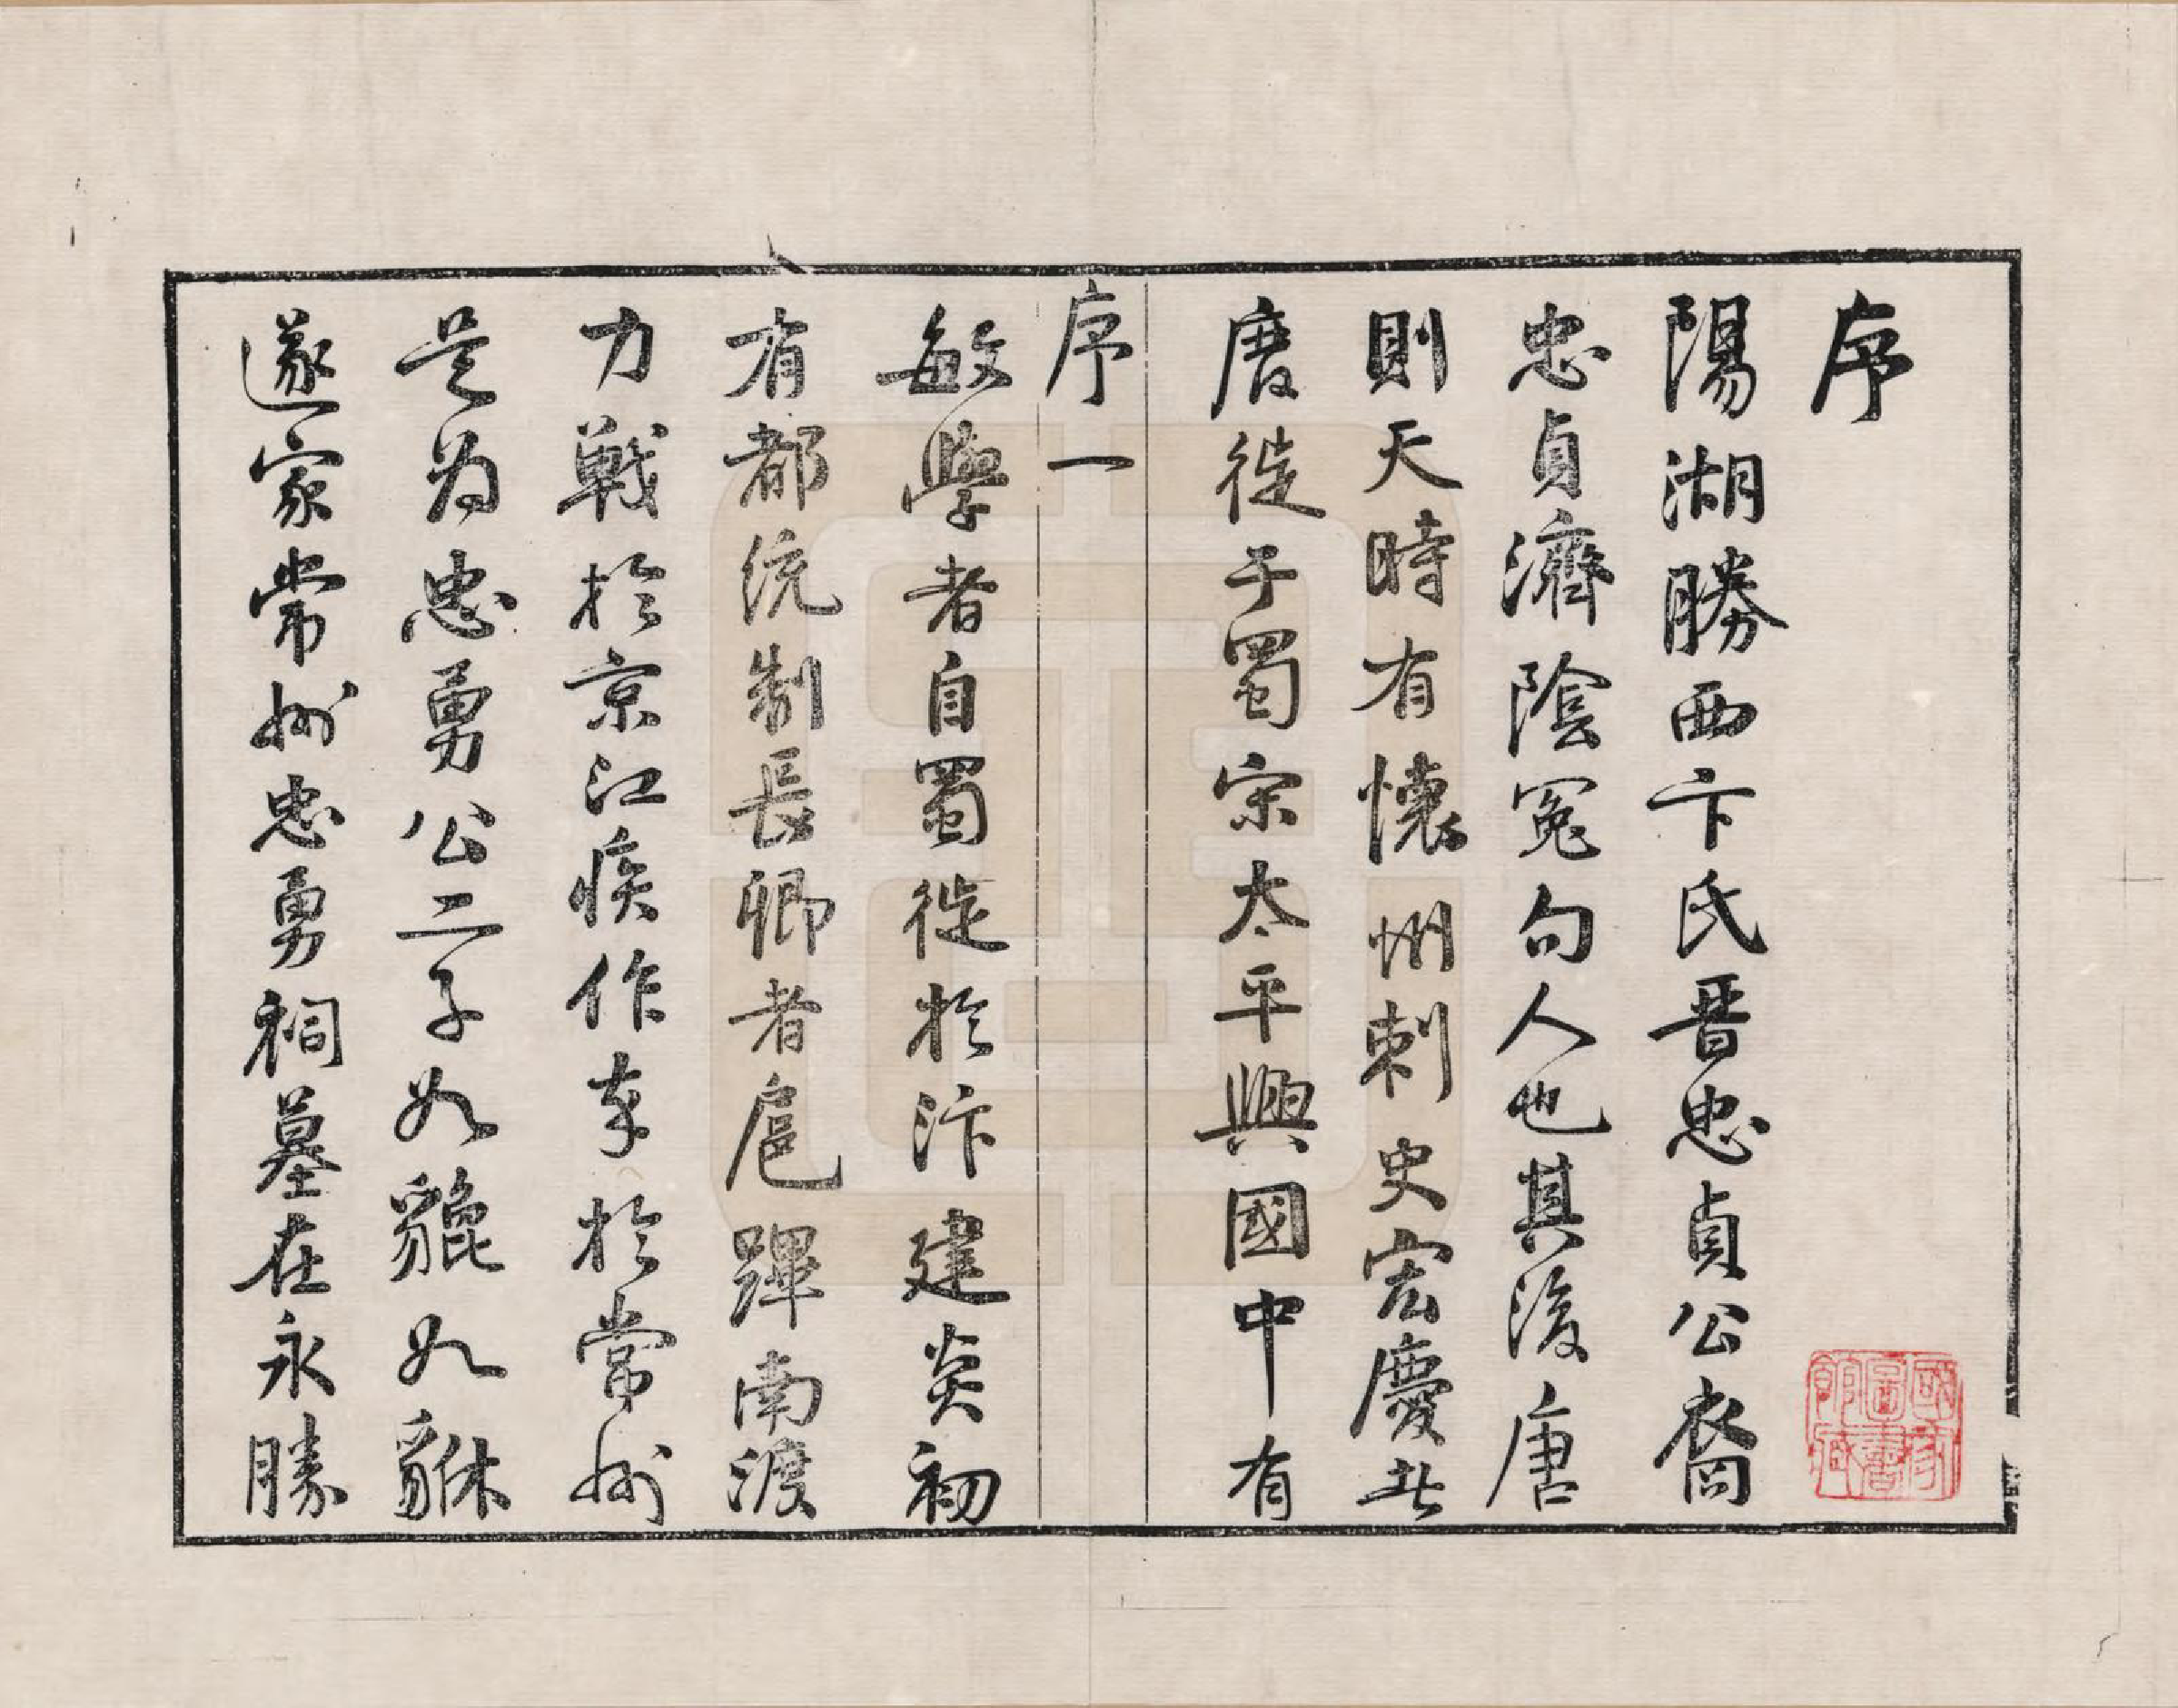 序
陽湖勝西卞氏晋忠貞公裔
忠貞濟陰冤句人也其後唐
則天時有懷州刺史宏慶北
唐徙于蜀宋太平興國中有
序一
敏學者自蜀徙於汴建炎初
有都統制長卿者扈蹕南渡
力戰於京江疾作卒於常州
是為忠勇公二子如貔如貅
遂家常州忠勇祠墓在永勝
國家圖書館藏